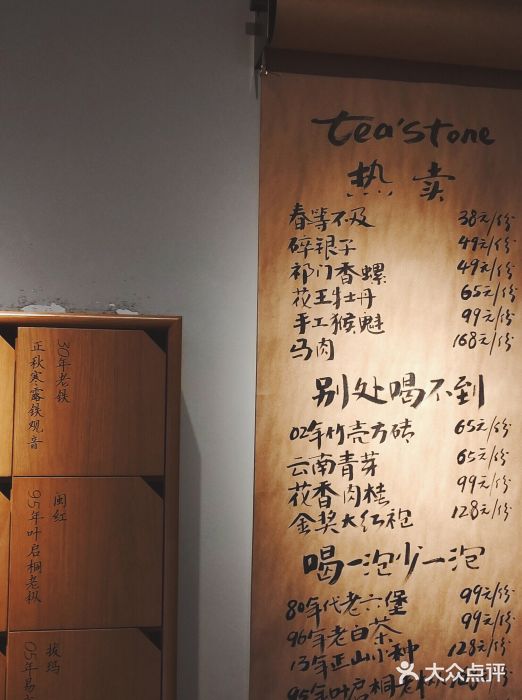 tea'stone
热卖
春等不及 38元/份
碎银子 49元/份
祁门香螺 49元/份
花王牡丹 65元/份
手工猴魁 99元/份
马肉 168元/份
别处喝不到
02年竹壳方砖 65元/份
云南青芽 65元/份
花香肉桂 99元/份
金奖大红袍 128元/份
喝一泡少一泡
80年代老六堡 99元/份
96年老白茶 99元/份
13年正山小种 128元/份
95年叶启桐老枞
30年老铁
正秋寒露铁观音
闽红
95年叶启桐老枞
拔玛
05年易
大众点评